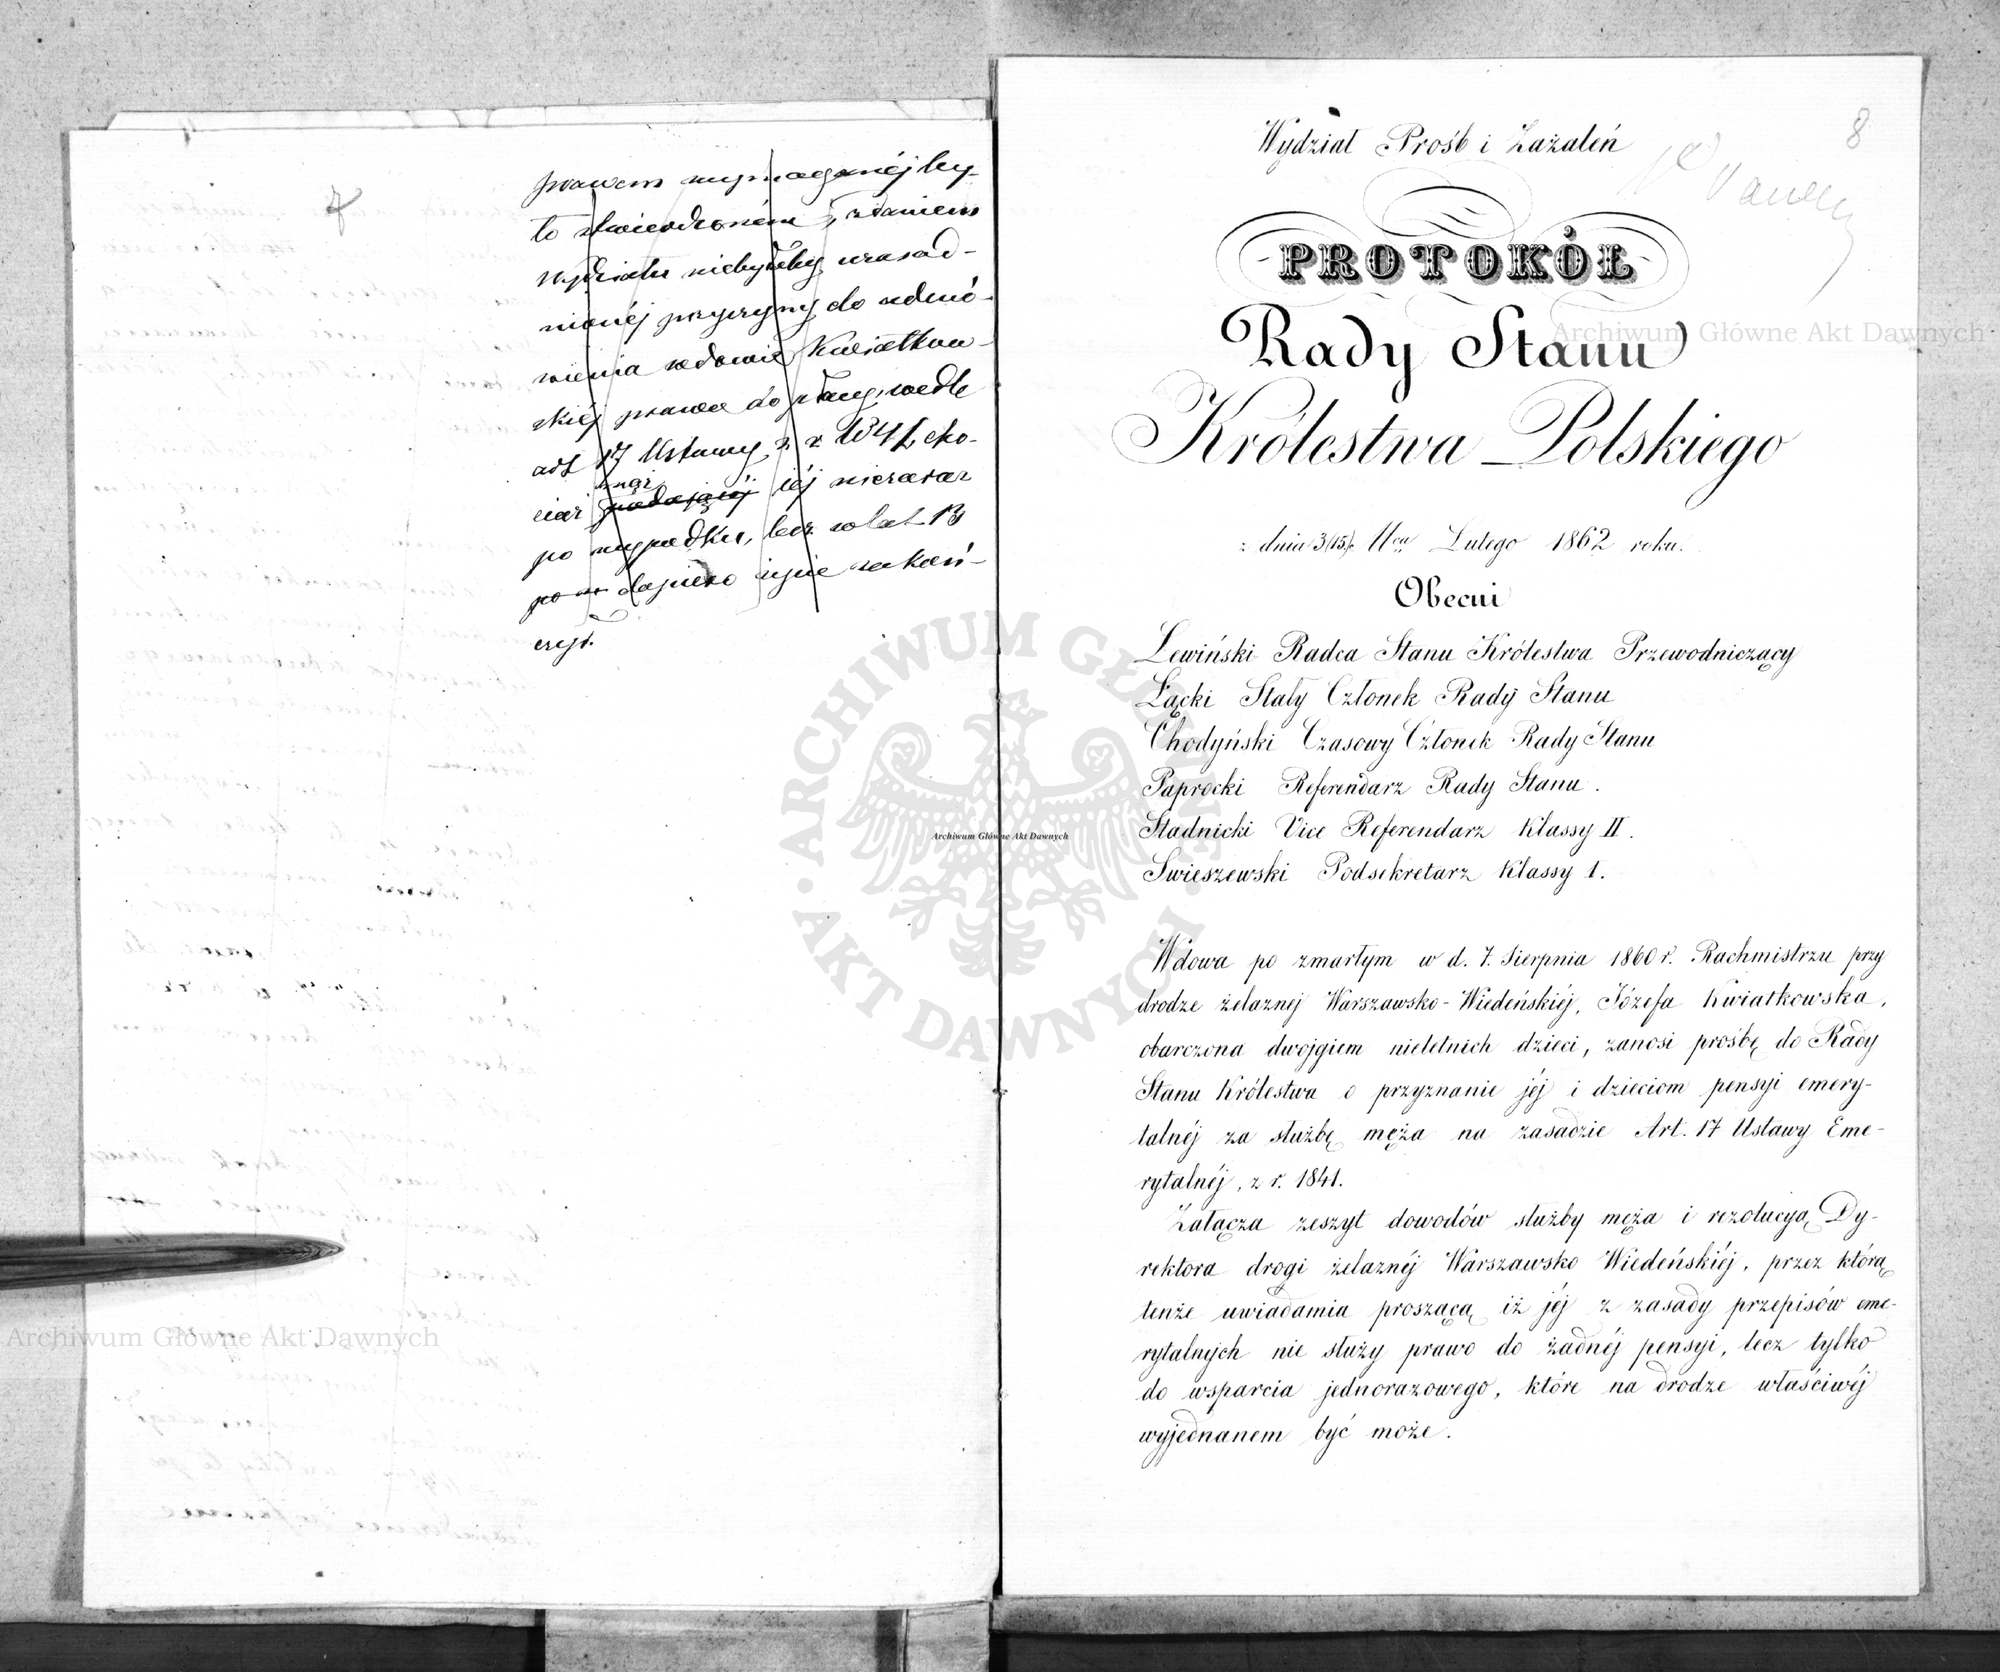 prawem wymaganéj by-
ło stwierdzoném, zdaniem
Wydziału niebyłoby uzasad-
nionéj przyczyny do odmó-
wienia wdowie Kwiatkow-
skiéj prawa do płacy wedle
art 17 Ustawy z r 1841, cho-
ciaż mąż jéj niezaraz
po wypadku, lecz w lat 13
po dopiero życie zakoń-
czył.
8
Wydział Próśb i Zażaleń
PROTOKÓŁ
Rady Stanu
Królestwa Polskiego
z dnia 3/15 Mca Lutego 1862 roku.
Obecni
Lewiński Radca Stanu Królestwa Przewodniczący
Łącki Stały Członek Rady Stanu
Chodyński Czasowy Członek Rady Stanu
Paprocki Referendarz Rady Stanu.
Stadnicki Vice Referendarz Klassy II.
Swieszewski Podsekretarz Klassy I.
Wdowa po zmarłym w d. 7. Sierpnia 1860 r. Rachmistrzu przy
drodze żelaznej Warszawsko-Wiedeńskiéj, Józefa Kwiatkowska,
obarczona dwojgiem nieletnich dzieci, zanosi prośbę do Rady
Stanu Królestwa o przyznanie jéj i dzieciom pensyi emery-
talnéj za służbę męża na zasadzie Art. 17 Ustawy Eme-
rytalnéj, z r. 1841.
Załącza zeszyt dowodów służby męża i rezolucyą Dy-
rektora drogi żelaznéj Warszawsko Wiedeńskiéj, przez którą
tenże uwiadamia proszącą iż jéj z zasady przepisów eme-
rytalnych nie służy prawo do żadnéj pensyi, lecz tylko
do wsparcia jednorazowego, które na drodze właściwéj
wyjednanem być może.
Archiwum Główne Akt Dawnych
Archiwum Główne Akt Dawnych
Archiwum Główne Akt Dawnych
ARCHIWUM GŁÓWNE AKT DAWNYCH